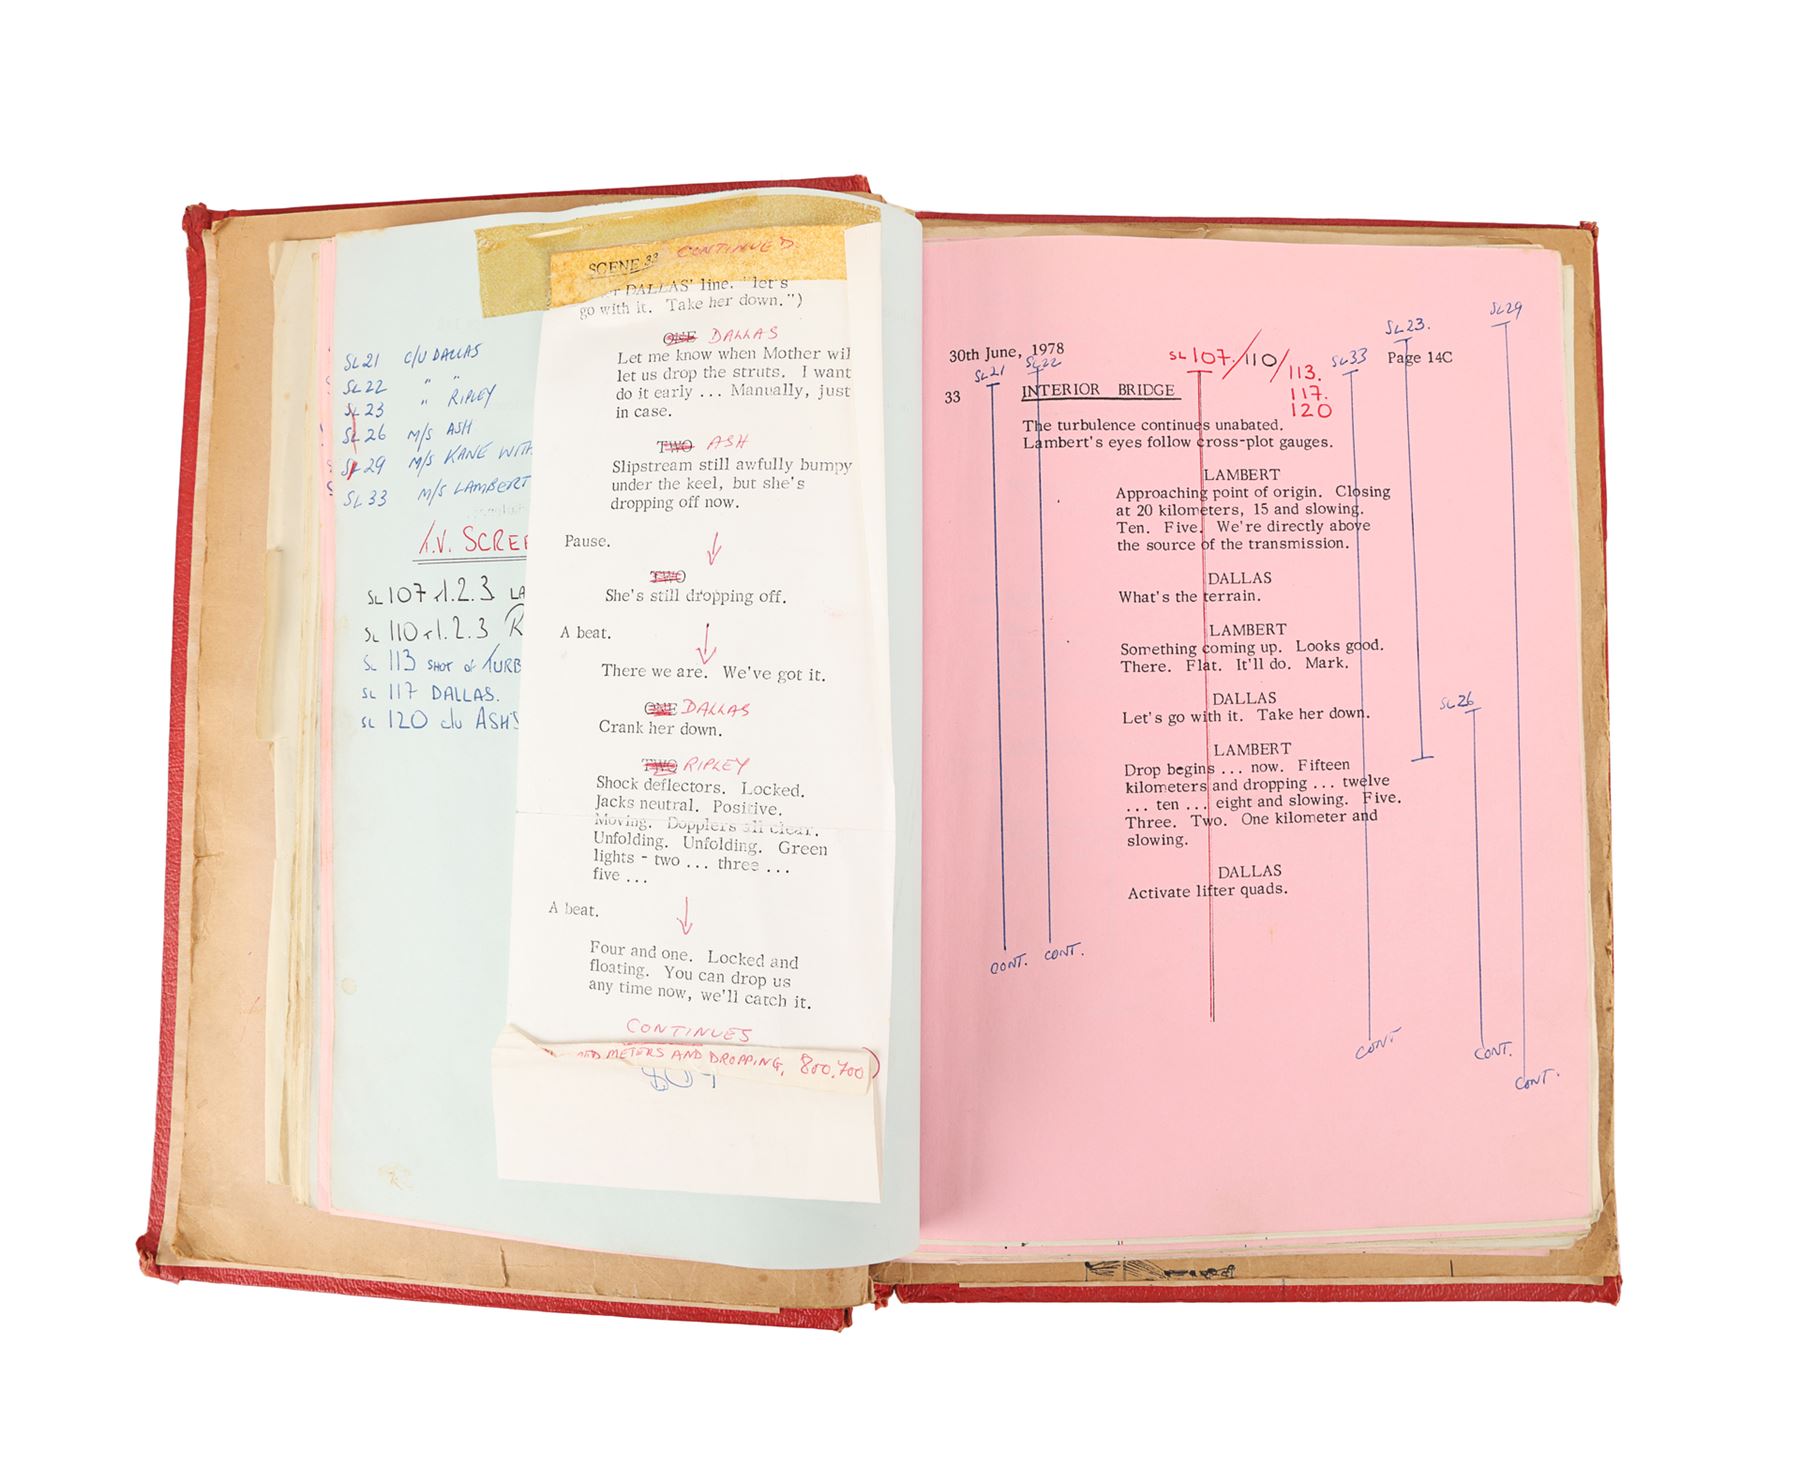 SL21 C/U DALLAS
SL22 " "
SL23 " RIPLEY
SL26 M/S ASH
SL29 M/S KANE WITH
SL33 M/S LAMBERT
T.V. SCREE
SL 107 T1.2.3 LA
SL 110 T1.2.3 R
SL 113 SHOT OF TURB
SL 117 DALLAS.
SL 120 C/U ASH'S
SCENE 33 CONTINUED.
DALLAS' line. "let's
go with it. Take her down.")
ONE DALLAS
Let me know when Mother wil
let us drop the struts. I want
do it early ... Manually, just
in case.
TWO ASH
Slipstream still awfully bumpy
under the keel, but she's
dropping off now.
Pause.
TWO
She's still dropping off.
A beat.
There we are. We've got it.
ONE DALLAS
Crank her down.
TWO RIPLEY
Shock deflectors. Locked.
Jacks neutral. Positive.
Moving. Dopplers all clear.
Unfolding. Unfolding. Green
lights - two ... three ...
five ...
A beat.
Four and one. Locked and
floating. You can drop us
any time now, we'll catch it.
CONTINUES
METERS AND DROPPING, 800.700)
SL29
SL23.
30th June, 1978
SL 107/110/113.
117.
120
SL33
Page 14C
SL21
SL22
33 INTERIOR BRIDGE
The turbulence continues unabated.
Lambert's eyes follow cross-plot gauges.
LAMBERT
Approaching point of origin. Closing
at 20 kilometers, 15 and slowing.
Ten. Five. We're directly above
the source of the transmission.
DALLAS
What's the terrain.
LAMBERT
Something coming up. Looks good.
There. Flat. It'll do. Mark.
DALLAS
Let's go with it. Take her down.
SL26
LAMBERT
Drop begins ... now. Fifteen
kilometers and dropping ... twelve
... ten ... eight and slowing. Five.
Three. Two. One kilometer and
slowing.
DALLAS
Activate lifter quads.
CONT. CONT.
CONT
CONT.
CONT.